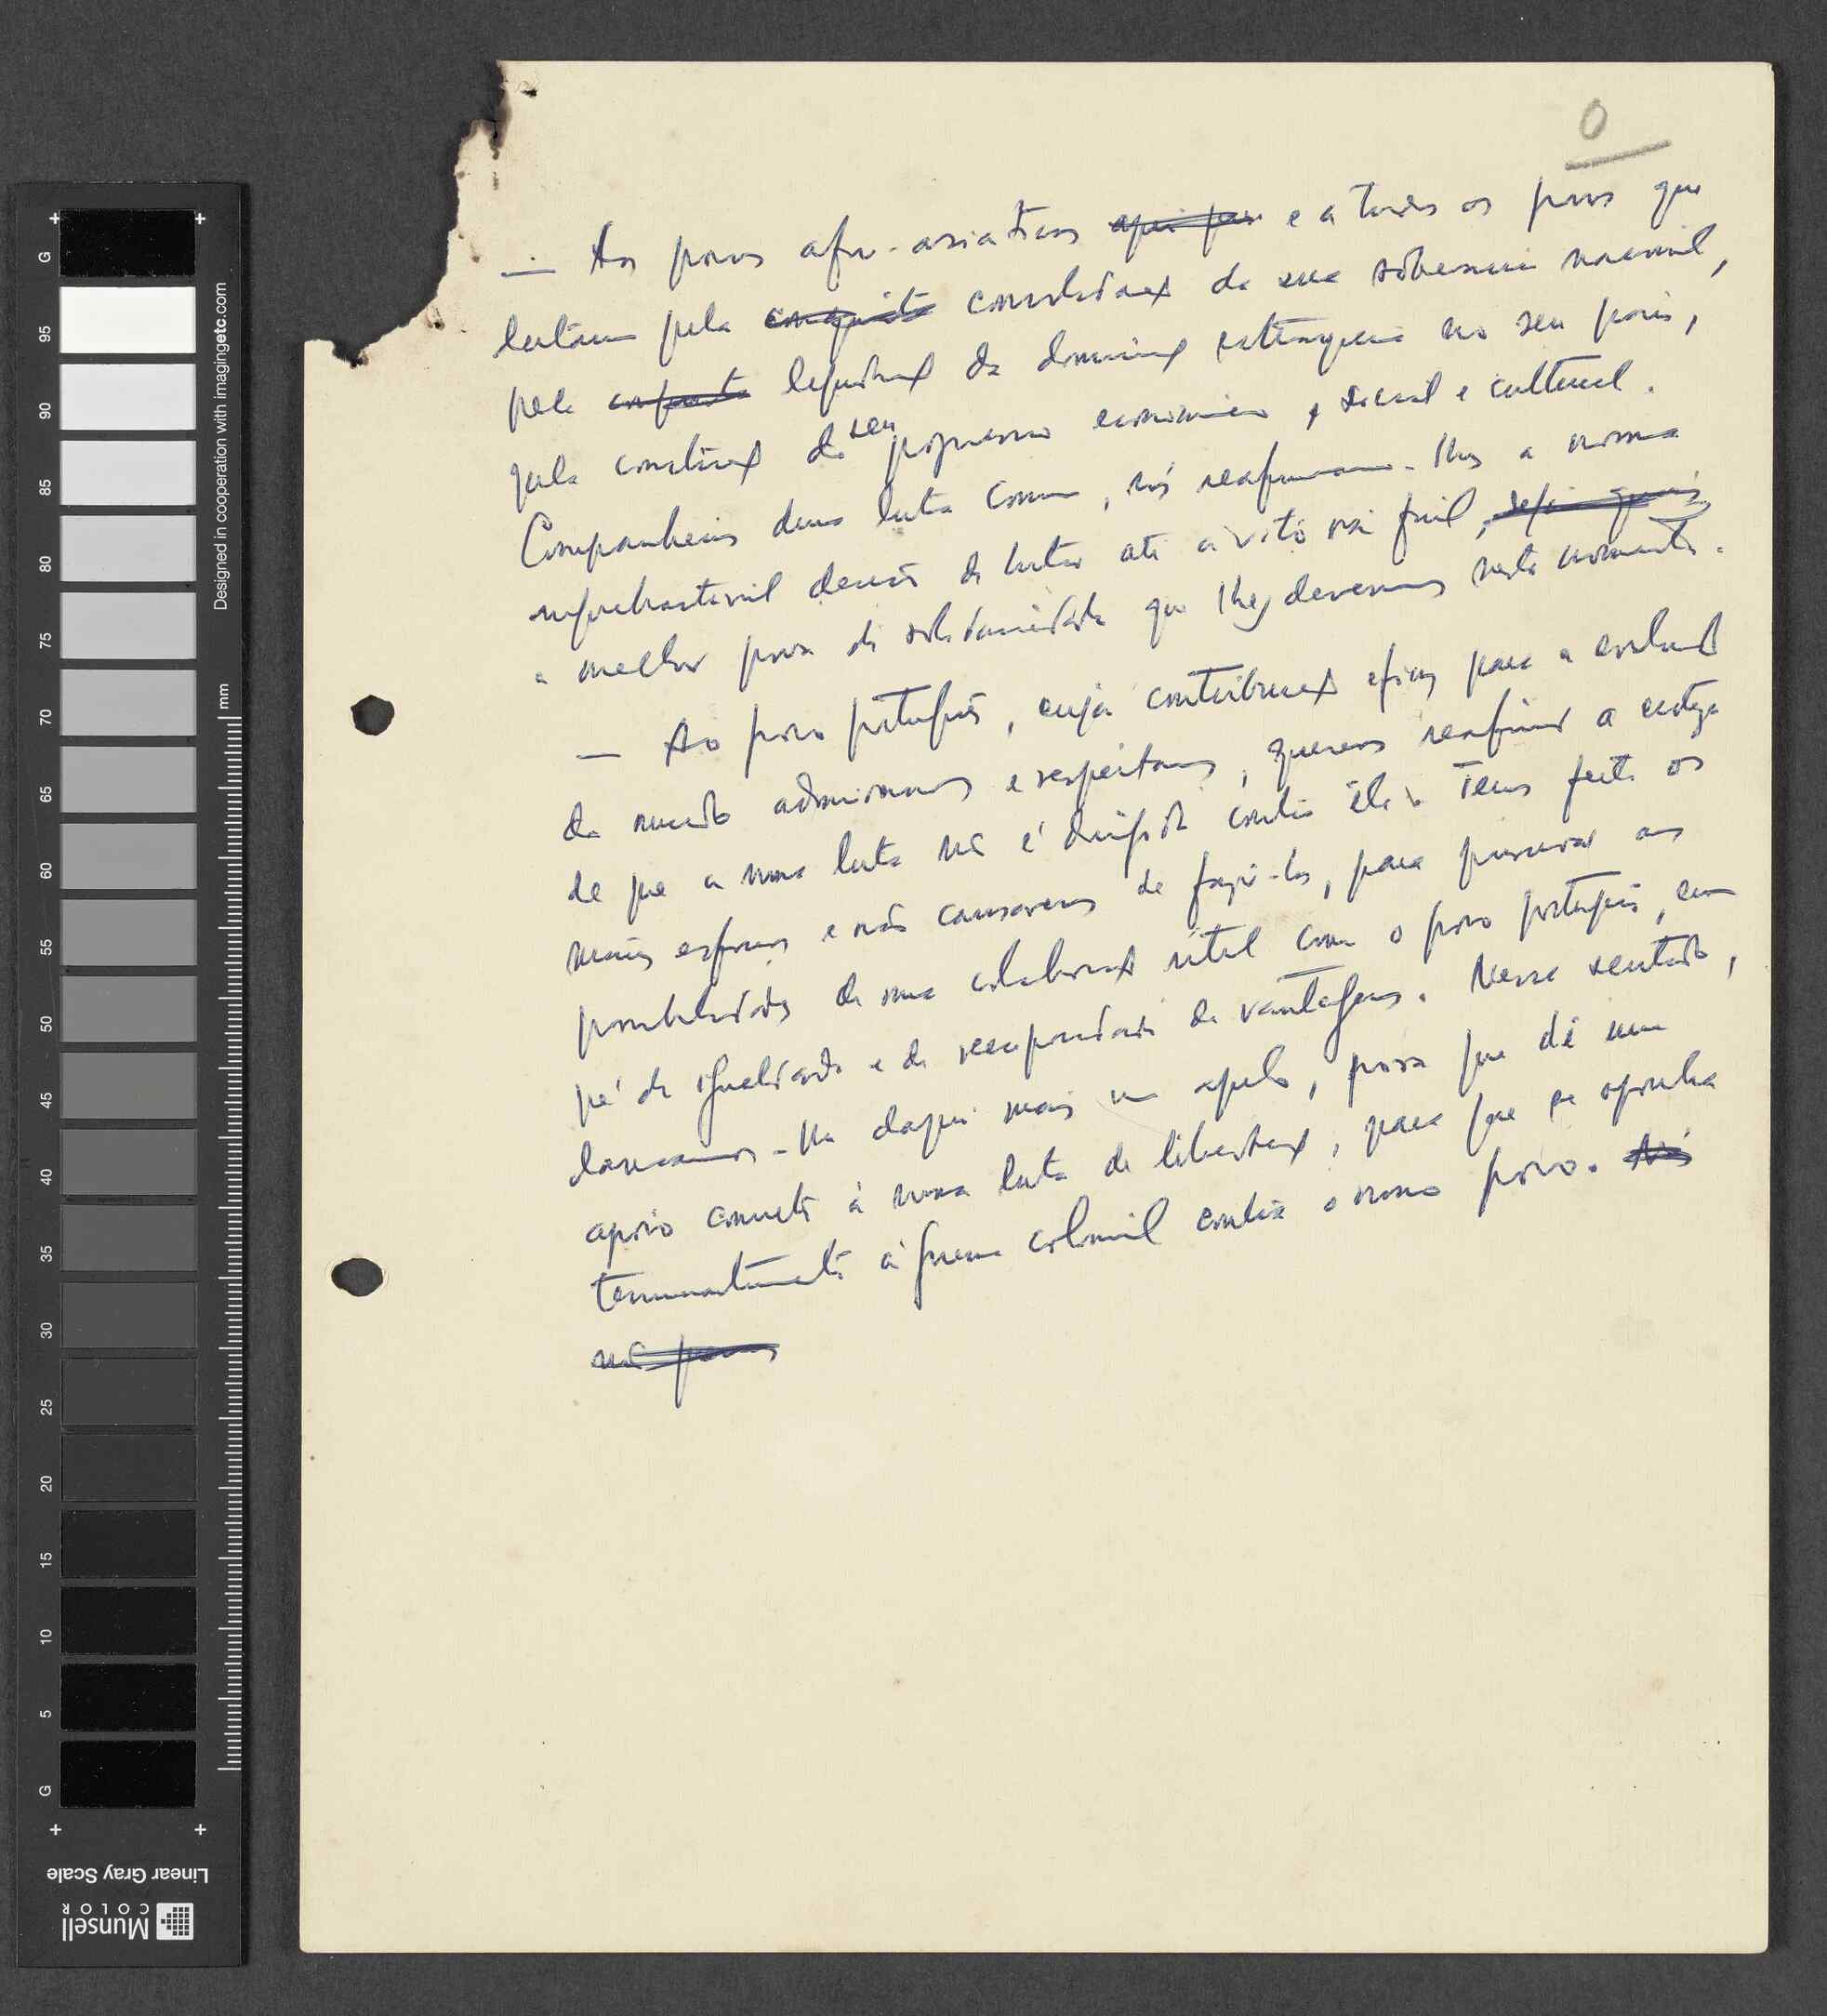 0
— Aos povos afro-asiáticos e a todos os povos que
lutam pela conquista consolidação da sua soberania nacional,
pela liquidação da dominação estrangeira no seu país,
pela construção do seu progresso económico, social e cultural.
Companheiros duma luta comum, nós reafirmamos-lhes a nossa
inquebrantável decisão de lutar até à vitória final,
a melhor prova de solidariedade que lhes devemos neste momento.
— Ao povo português, cuja contribuição eficaz para a evolução
do mundo admiramos e respeitamos, queremos reafirmar a certeza
de que a nossa luta não é dirigida contra êle. Temos feito os
mais esforços e não cansaremos de fazê-los, para preservar as
possibilidades de uma colaboração útil com o povo português, em
pé de igualdade e de reciprocidade de vantagens. Nesse sentido,
lançamos-lhe daqui mais um apelo, para que dê um
apoio concreto à nossa luta de libertação, para que se oponha
terminantemente à guerra colonial contra o nosso povo. Nós
não
G 95 90 85 80 75 70 65 60 55 50 45 40 35 30 25 20 15 10 5 G
Designed in cooperation with imagingetc.com
mm
Linear Gray Scale
Munsell
COLOR